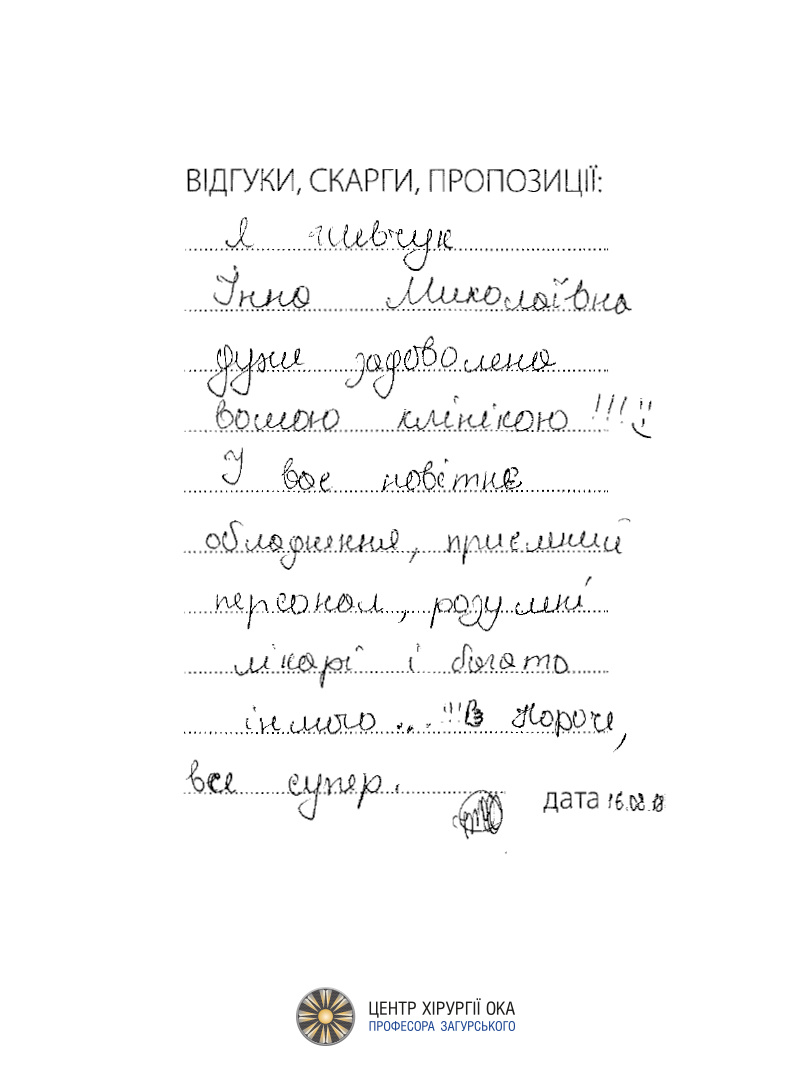 ВІДГУКИ, СКАРГИ, ПРОПОЗИЦІЇ:
Я Шевчук
Інна Миколаївна
дуже задоволена
вашою клінікою!!!
У вас новітнє
обладнення, приємний
персонал, розумні
лікарі і багато
іншого...!!! Короче,
все супер.
дата 16.02.18
ЦЕНТР ХІРУРГІЇ ОКА
ПРОФЕСОРА ЗАГУРСЬКОГО